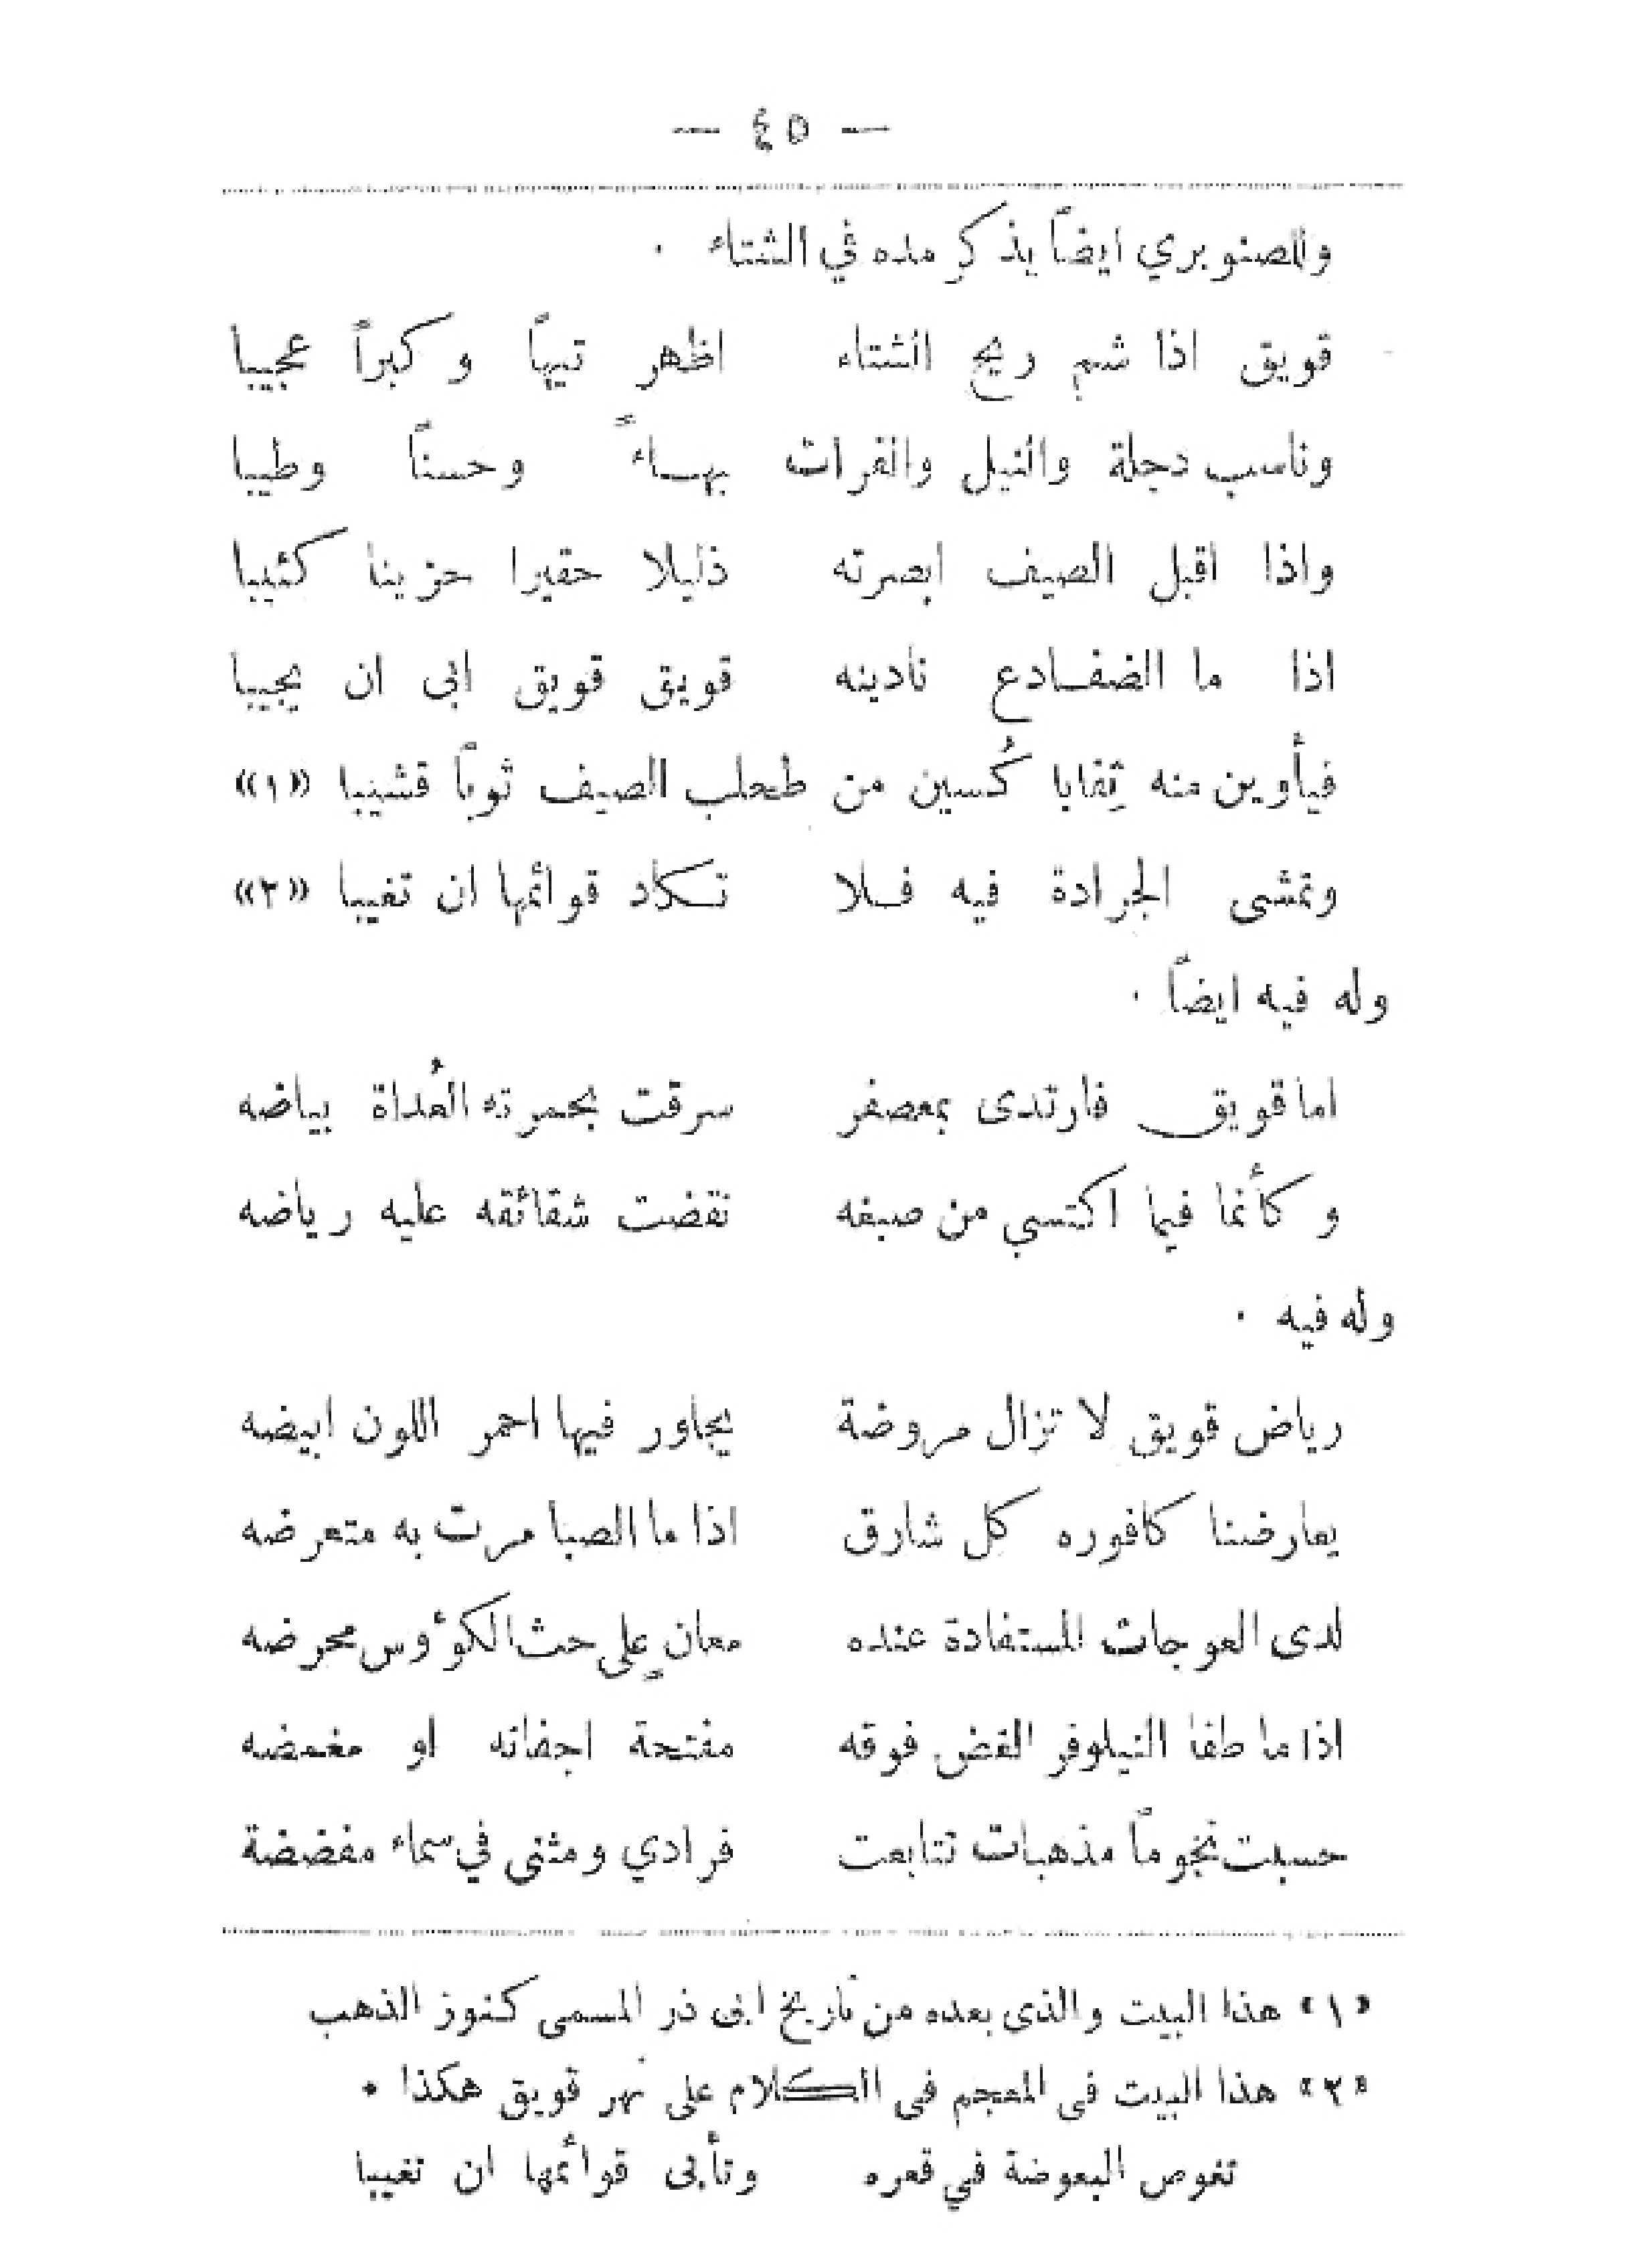 — ٤٥ —
وللصنوبري ايضاً يذكر مده في الشتاء .
قويق اذا شم ريح الشتاء اظهر تيهاً وكبراً عجيبا
وناسب دجلة والنيل والفرات بهاءً وحسناً وطيبا
واذا اقبل الصيف ابصرته ذليلا حقيرا حزينا كئيبا
اذا ما الضفادع نادينه قويق قويق ابى ان يجيبا
فيأوين منه بقايا كُسين من طحلب الصيف ثوباً قشيبا «١»
وتمشى الجرادة فيه فلا تكاد قوائمها ان تغيبا «٢»
وله فيه ايضاً .
اما قويق فارتدى بمعصفر سرقت بحمرته العُداة بياضه
وكأنما فيما اكتسى من صبغه نقضت شقائقه عليه رياضه
وله فيه .
رياض قويق لا تزال مروضة يجاور فيها احمر اللون ابيضه
يعارضنا كافوره كل شارق اذا ما الصبا مرت به متعرضه
لدى العوجات المستفادة عنده معانٍ على حث الكؤوس محرضه
اذا ما طفا النيلوفر الغض فوقه مفتحة اجفانه او مغمضه
حسبت نجوماً مذهبات تتابعت فرادي ومثنى في سماء مفضضة
«١» هذا البيت والذى بعده من تاريخ ابى ذر المسمى كنوز الذهب
«٢» هذا البيت فى المعجم فى الكلام على نهر قويق هكذا .
تغوص البعوضة في قعره وتأبى قوائمها ان تغيبا